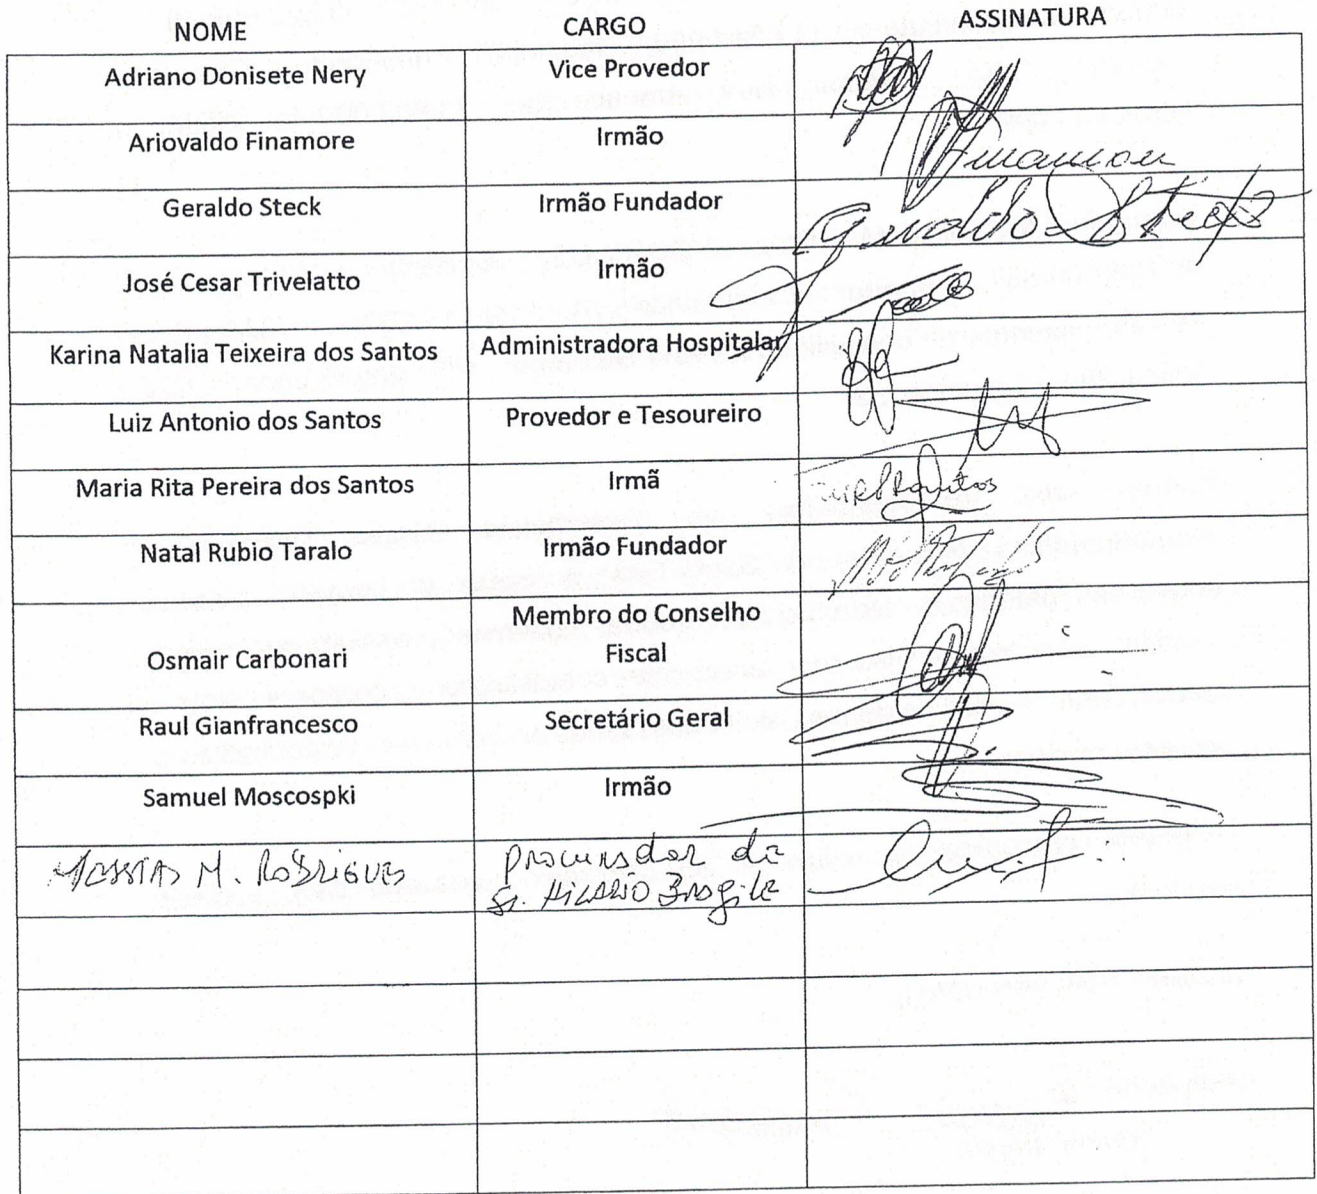 NOME CARGO ASSINATURA
Adriano Donisete Nery Vice Provedor
Ariovaldo Finamore Irmão
Geraldo Steck Irmão Fundador Geraldo Steck
José Cesar Trivelatto Irmão
Karina Natalia Teixeira dos Santos Administradora Hospitalar
Luiz Antonio dos Santos Provedor e Tesoureiro
Maria Rita Pereira dos Santos Irmã
Natal Rubio Taralo Irmão Fundador
Membro do Conselho
Osmair Carbonari Fiscal
Raul Gianfrancesco Secretário Geral
Samuel Moscospki Irmão
M. Rodrigues Procurador do
Sr. Hilario